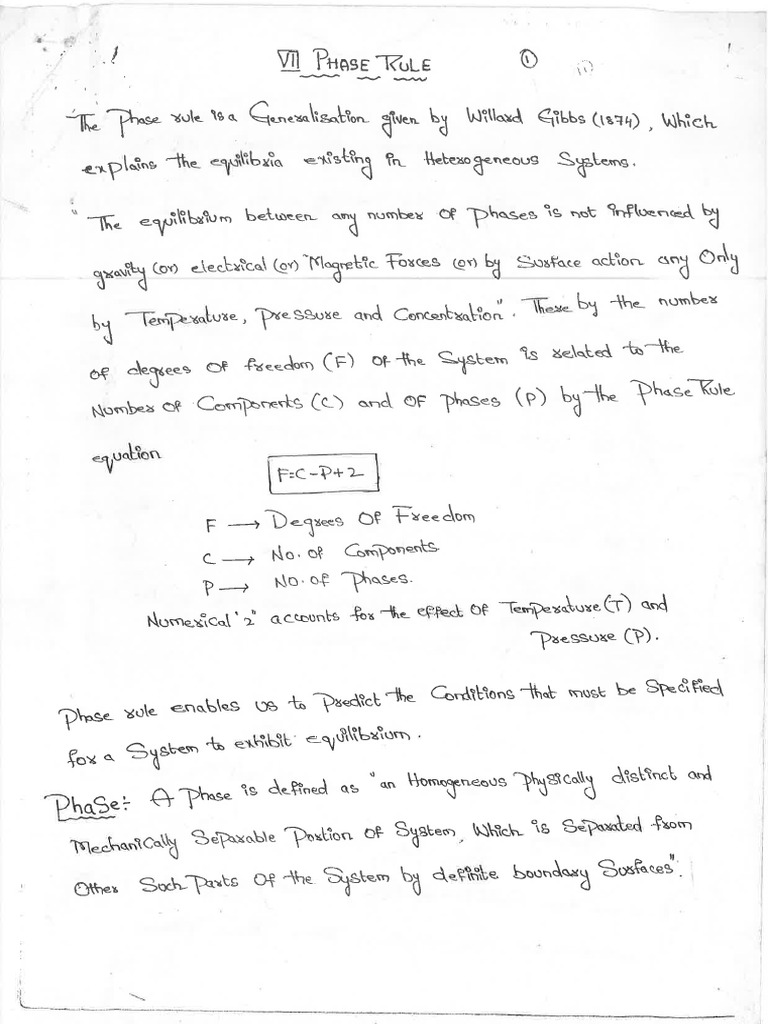 VII PHASE RULE ①
(1)
The Phase rule is a Generalisation given by Willard Gibbs (1874), Which
explains the equilibria existing in Heterogeneous Systems.
"The equilibrium between any number of Phases is not influenced by
gravity (or) electrical (or) Magnetic Forces (or) by Surface action any Only
by Temperature, Pressure and Concentration". There by the number
of degrees of freedom (F) of the System is related to the
Number of Components (C) and of phases (P) by the Phase Rule
equation
F=C-P+2
F → Degrees Of Freedom
C → No. of Components
P → No. of Phases.
Numerical '2" accounts for the effect of Temperature (T) and
Pressure (P).
Phase rule enables us to Predict the Conditions that must be Specified
for a System to exhibit equilibrium.
Phase:- A Phase is defined as "an Homogeneous Physically distinct and
Mechanically Separable Portion of System, Which is Separated from
Other Such Parts Of the System by definite boundary Surfaces".